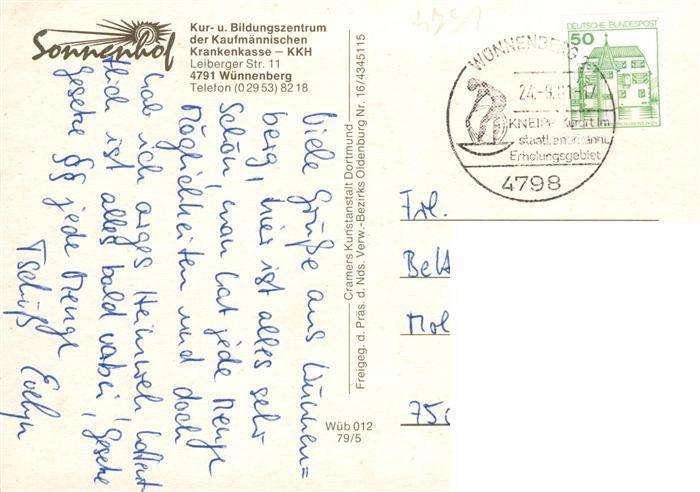 Sonnenhof
Kur- u. Bildungszentrum
der Kaufmännischen
Krankenkasse – KKH
Leiberger Str. 11
4791 Wünnenberg
Telefon (0 29 53) 82 18
Viele Grüße aus Wünnen=
berg, hier ist alles sehr
schön, man hat jede Menge
Möglichkeiten und doch
hab ich arges Heimweh
ist alles bald vorbei!
jede Menge
Tschüß Evelyn
Cramers Kunstanstalt Dortmund
Freigeg. d. Präs. d. Nds. Verw.-Bezirks Oldenburg Nr. 16/4345115
Wüb 012
79/5
WÜNNENBERG
24.-9.81-17
KNEIPP-Kurort im
staatl. anerkannt.
Erholungsgebiet
4798
DEUTSCHE BUNDESPOST
50
Frl.